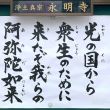 浄土真宗 永明寺
光の国から
衆生のために
来たぞ我らの
阿弥陀如来